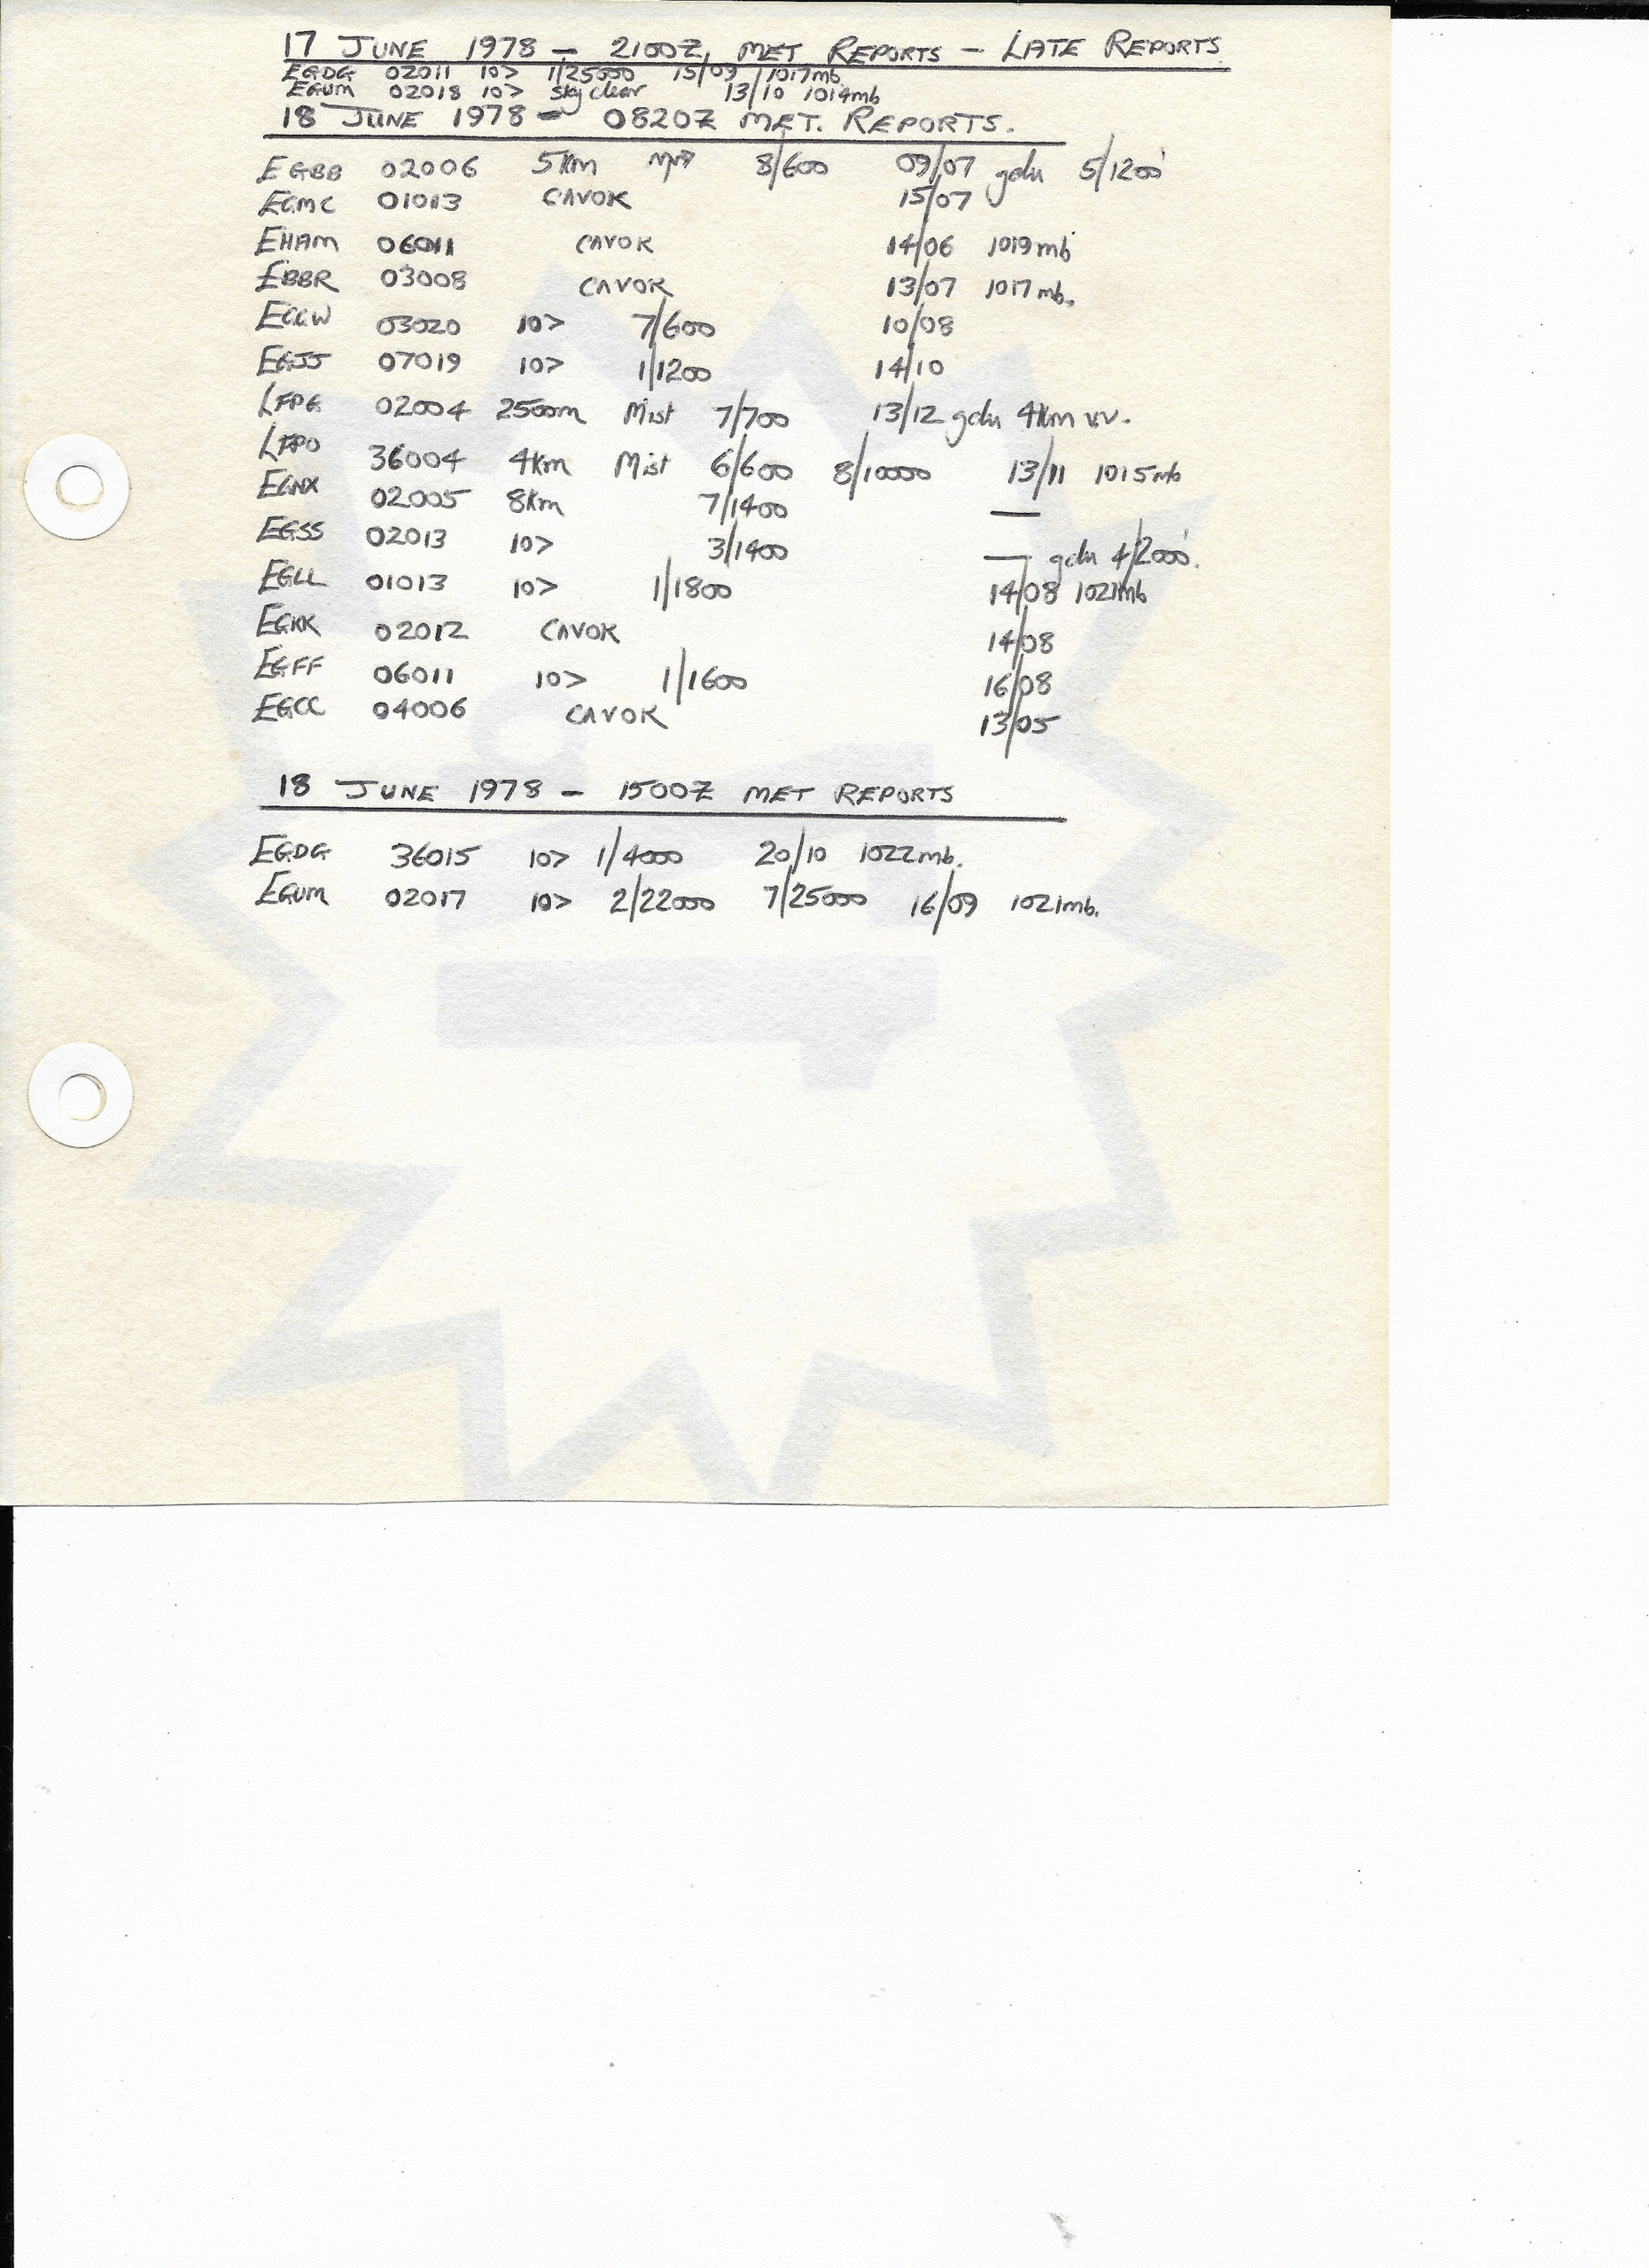 17 JUNE 1978 - 2100Z MET REPORTS - LATE REPORTS.
EGDG 02011 10> 1/25000 15/09 1017mb.
EGUM 02018 10> sky clear 13/10 1014mb
18 JUNE 1978 - 0820Z MET. REPORTS.
EGBB 02006 5km 8/600 09/07 gdu 5/1200'
EGMC 01013 CAVOK 15/07
EHAM 06011 CAVOK 14/06 1019mb
EBBR 03008 CAVOK 13/07 1017mb.
EGGW 03020 10> 7/600 10/08
EGJJ 07019 10> 1/1200 14/10
LFPG 02004 2500m Mist 7/700 13/12 gdu 4km v.v.
LFPO 36004 4km Mist 6/600 8/10000 13/11 1015mb
EGNX 02005 8km 7/1400 —
EGSS 02013 10> 3/1400 — gdu 4/2000'.
EGLL 01013 10> 1/1800 14/08 1021mb
EGKK 02012 CAVOK 14/08
EGFF 06011 10> 1/1600 16/08
EGCC 04006 CAVOK 13/05
18 JUNE 1978 - 1500Z MET REPORTS
EGDG 36015 10> 1/4000 20/10 1022mb.
EGUM 02017 10> 2/22000 7/25000 16/09 1021mb.